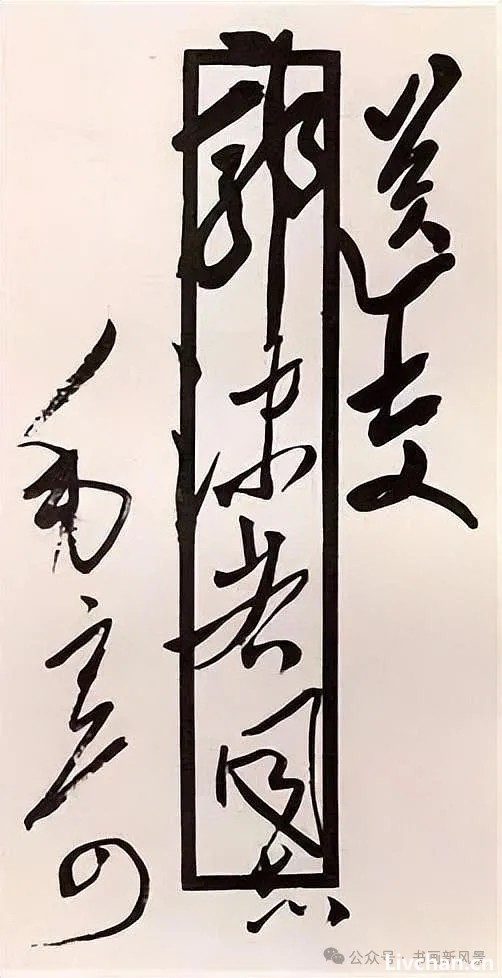 送交
郭沫若同志
毛寄
公众号·书画新风景
Livchan.cn